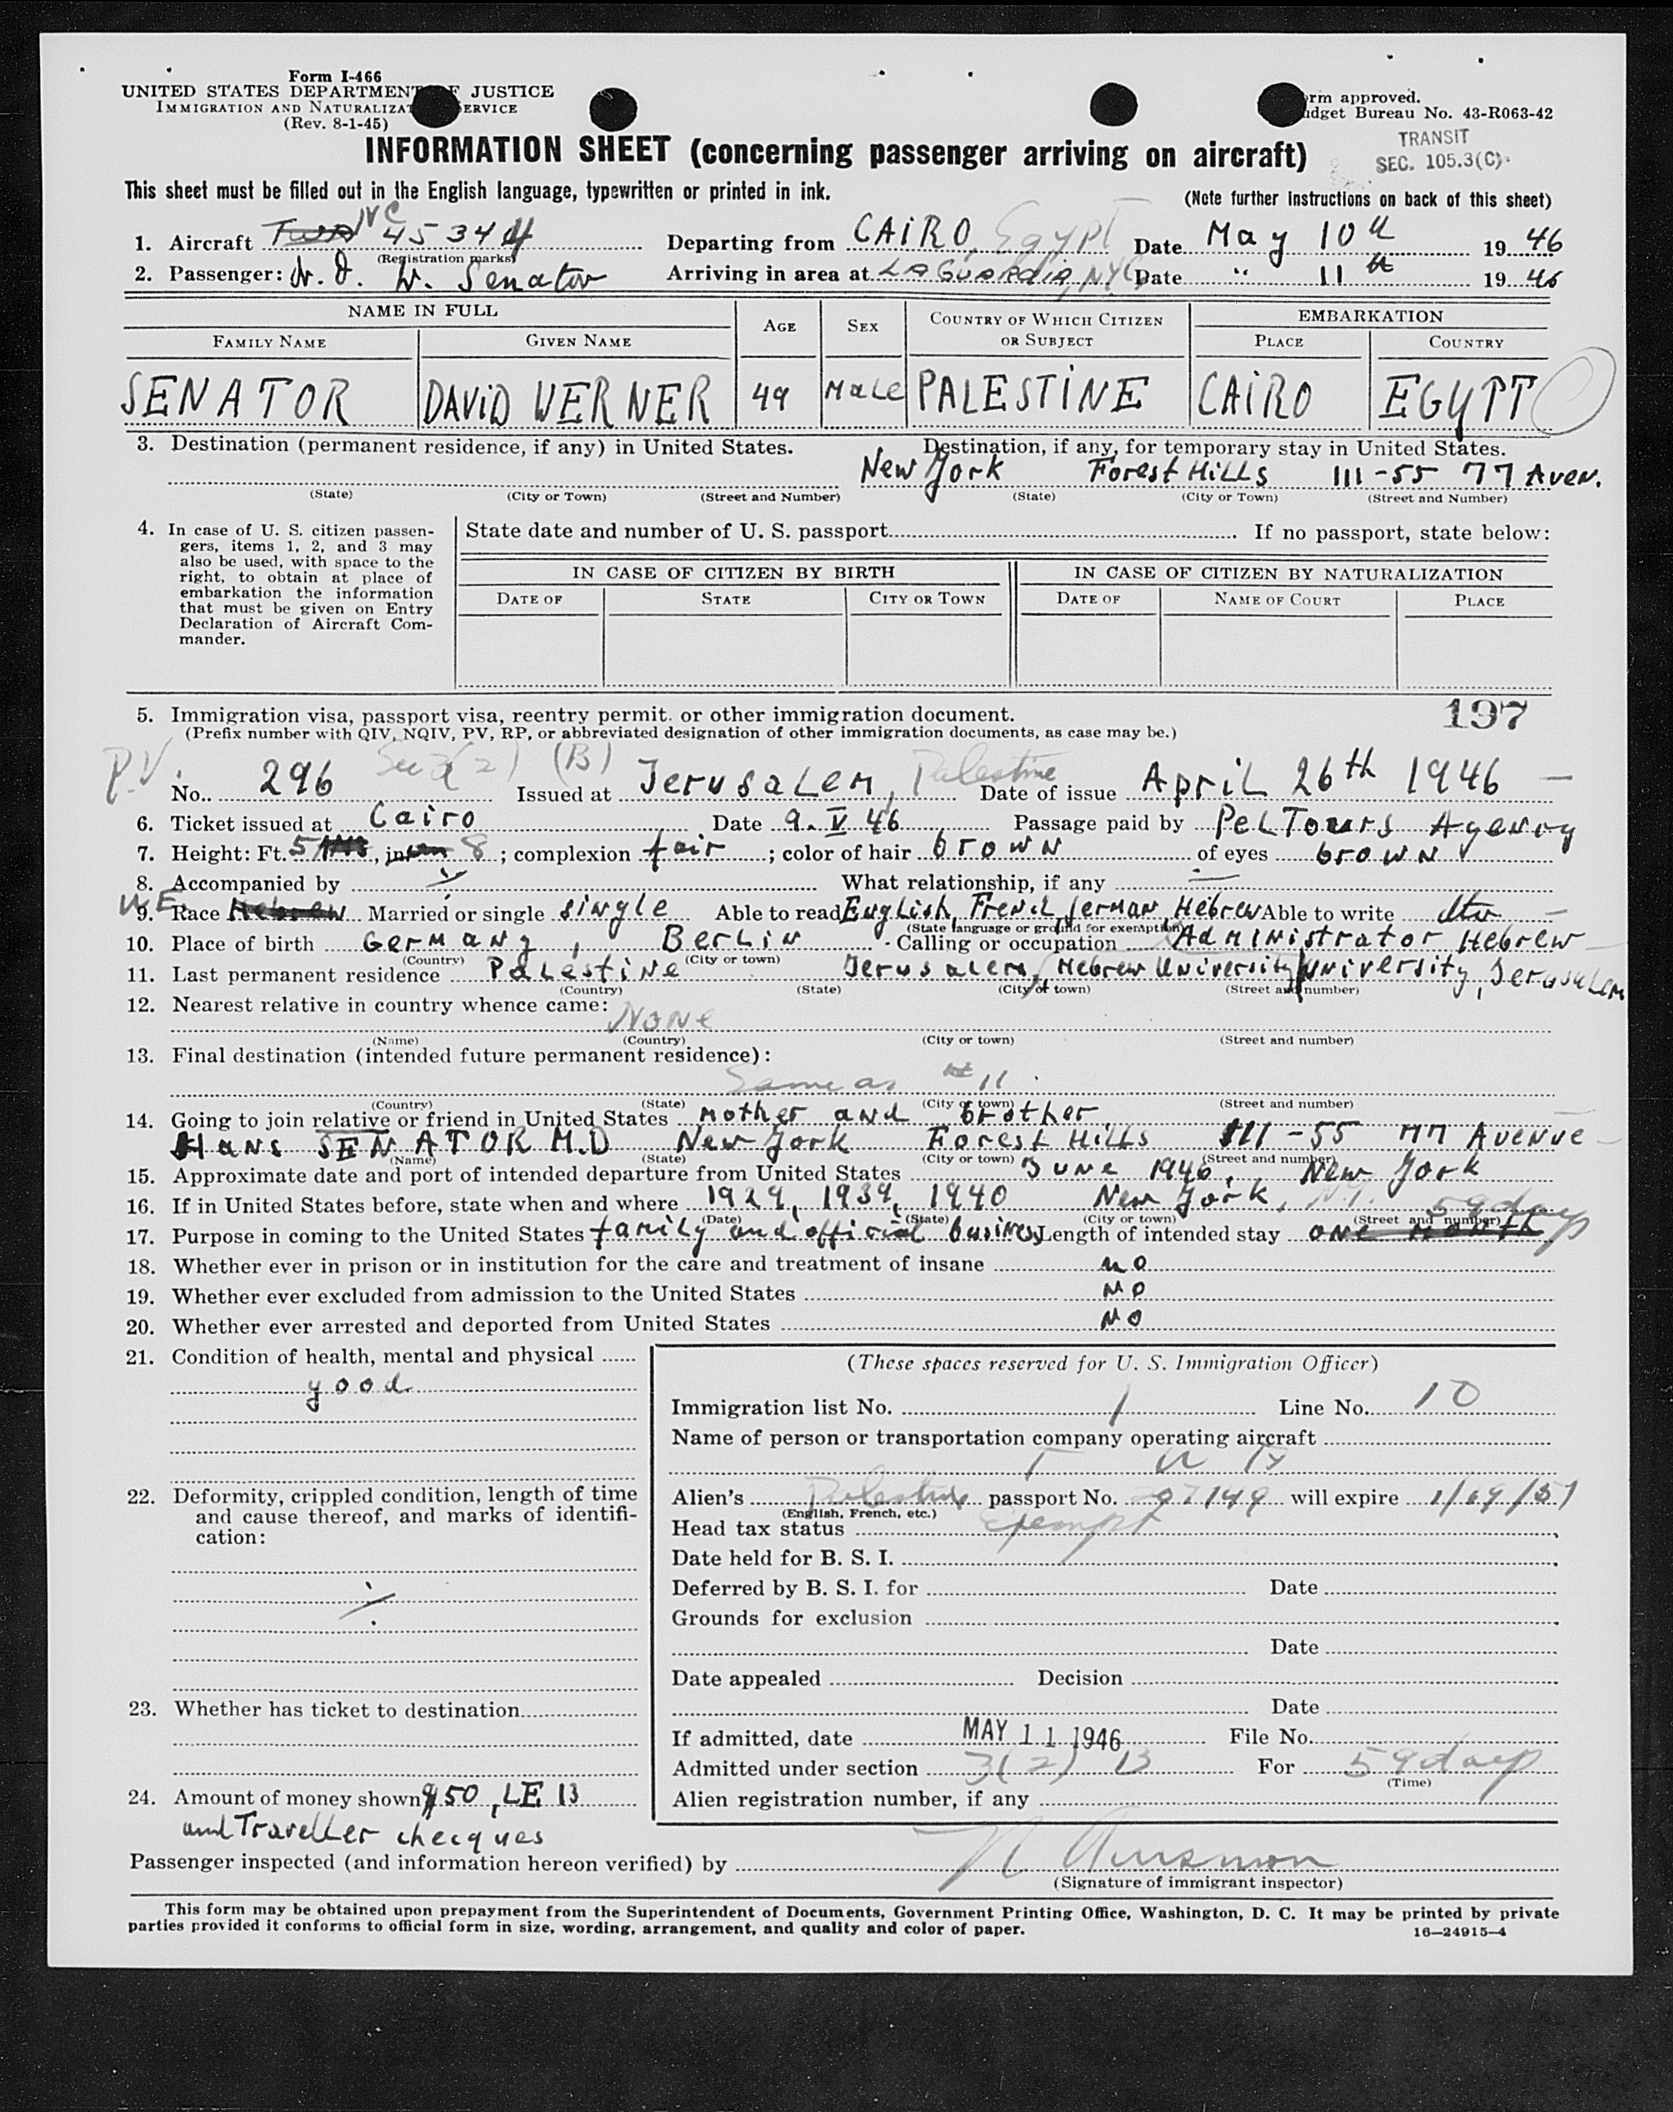 Form I-466
UNITED STATES DEPARTMENT OF JUSTICE
IMMIGRATION AND NATURALIZATION SERVICE
(Rev. 8-1-45)
Form approved.
Budget Bureau No. 43-R063-42
TRANSIT
SEC. 105.3(C)
INFORMATION SHEET (concerning passenger arriving on aircraft)
This sheet must be filled out in the English language, typewritten or printed in ink.
(Note further instructions on back of this sheet)
1. Aircraft TWA NC 45344 Departing from CAIRO, Egypt Date May 10th 1946
(Registration marks)
2. Passenger: D. W. Senator Arriving in area at LA GUARDIA, NYC Date " 11th 1946
NAME IN FULL AGE SEX COUNTRY OF WHICH CITIZEN OR SUBJECT EMBARKATION
FAMILY NAME GIVEN NAME PLACE COUNTRY
SENATOR DAVID WERNER 49 MALE PALESTINE CAIRO EGYPT
3. Destination (permanent residence, if any) in United States. Destination, if any, for temporary stay in United States.
New York Forest Hills 111-55 77 Aven.
(State) (City or Town) (Street and Number) (State) (City or Town) (Street and Number)
4. In case of U. S. citizen passengers, items 1, 2, and 3 may also be used, with space to the right, to obtain at place of embarkation the information that must be given on Entry Declaration of Aircraft Commander.
State date and number of U. S. passport If no passport, state below:
IN CASE OF CITIZEN BY BIRTH IN CASE OF CITIZEN BY NATURALIZATION
DATE OF STATE CITY OR TOWN DATE OF NAME OF COURT PLACE
5. Immigration visa, passport visa, reentry permit, or other immigration document. 197
(Prefix number with QIV, NQIV, PV, RP, or abbreviated designation of other immigration documents, as case may be.)
P.V. Sec 3(2) (B)
No. 296 Issued at Jerusalem, Palestine Date of issue April 26th 1946
6. Ticket issued at Cairo Date 9. V 46 Passage paid by PelTours Agency
7. Height: Ft. 5, in. 8; complexion fair; color of hair brown of eyes brown
8. Accompanied by What relationship, if any —
9. Race Hebrew Married or single single Able to read English, French, German, Hebrew Able to write dto
(State language or ground for exemption)
10. Place of birth Germany, Berlin Calling or occupation Administrator Hebrew
(Country) (City or town)
11. Last permanent residence Palestine Jerusalem, Hebrew University University, Jerusalem
(Country) (State) (City or town) (Street and number)
12. Nearest relative in country whence came: None
(Name) (Country) (City or town) (Street and number)
13. Final destination (intended future permanent residence):
Same as # 11
(Country) (State) (City or town) (Street and number)
14. Going to join relative or friend in United States mother and brother
Hans SENATOR M.D New York Forest Hills 111-55 77 Avenue
(Name) (State) (City or town) (Street and number)
15. Approximate date and port of intended departure from United States June 1946, New York
16. If in United States before, state when and where 1929, 1939, 1940 New York, N.Y.
(Date) (State) (City or town) (Street and number)
59 days
17. Purpose in coming to the United States family and official business Length of intended stay one month
18. Whether ever in prison or in institution for the care and treatment of insane no
19. Whether ever excluded from admission to the United States no
20. Whether ever arrested and deported from United States no
21. Condition of health, mental and physical
good
22. Deformity, crippled condition, length of time and cause thereof, and marks of identification:
23. Whether has ticket to destination
24. Amount of money shown $50, LE 13
and Traveller checques
(These spaces reserved for U. S. Immigration Officer)
Immigration list No. 1 Line No. 10
Name of person or transportation company operating aircraft
T W A
Alien's Palestine passport No. 149 will expire 1/
(English, French, etc.)
Head tax status Exempt
Date held for B. S. I.
Deferred by B. S. I. for Date
Grounds for exclusion
Date
Date appealed Decision
Date
If admitted, date MAY 11 1946 File No.
Admitted under section 3(2) B For 59 days
(Time)
Alien registration number, if any
Passenger inspected (and information hereon verified) by
(Signature of immigrant inspector)
This form may be obtained upon prepayment from the Superintendent of Documents, Government Printing Office, Washington, D. C. It may be printed by private
parties provided it conforms to official form in size, wording, arrangement, and quality and color of paper.
16—24915-4